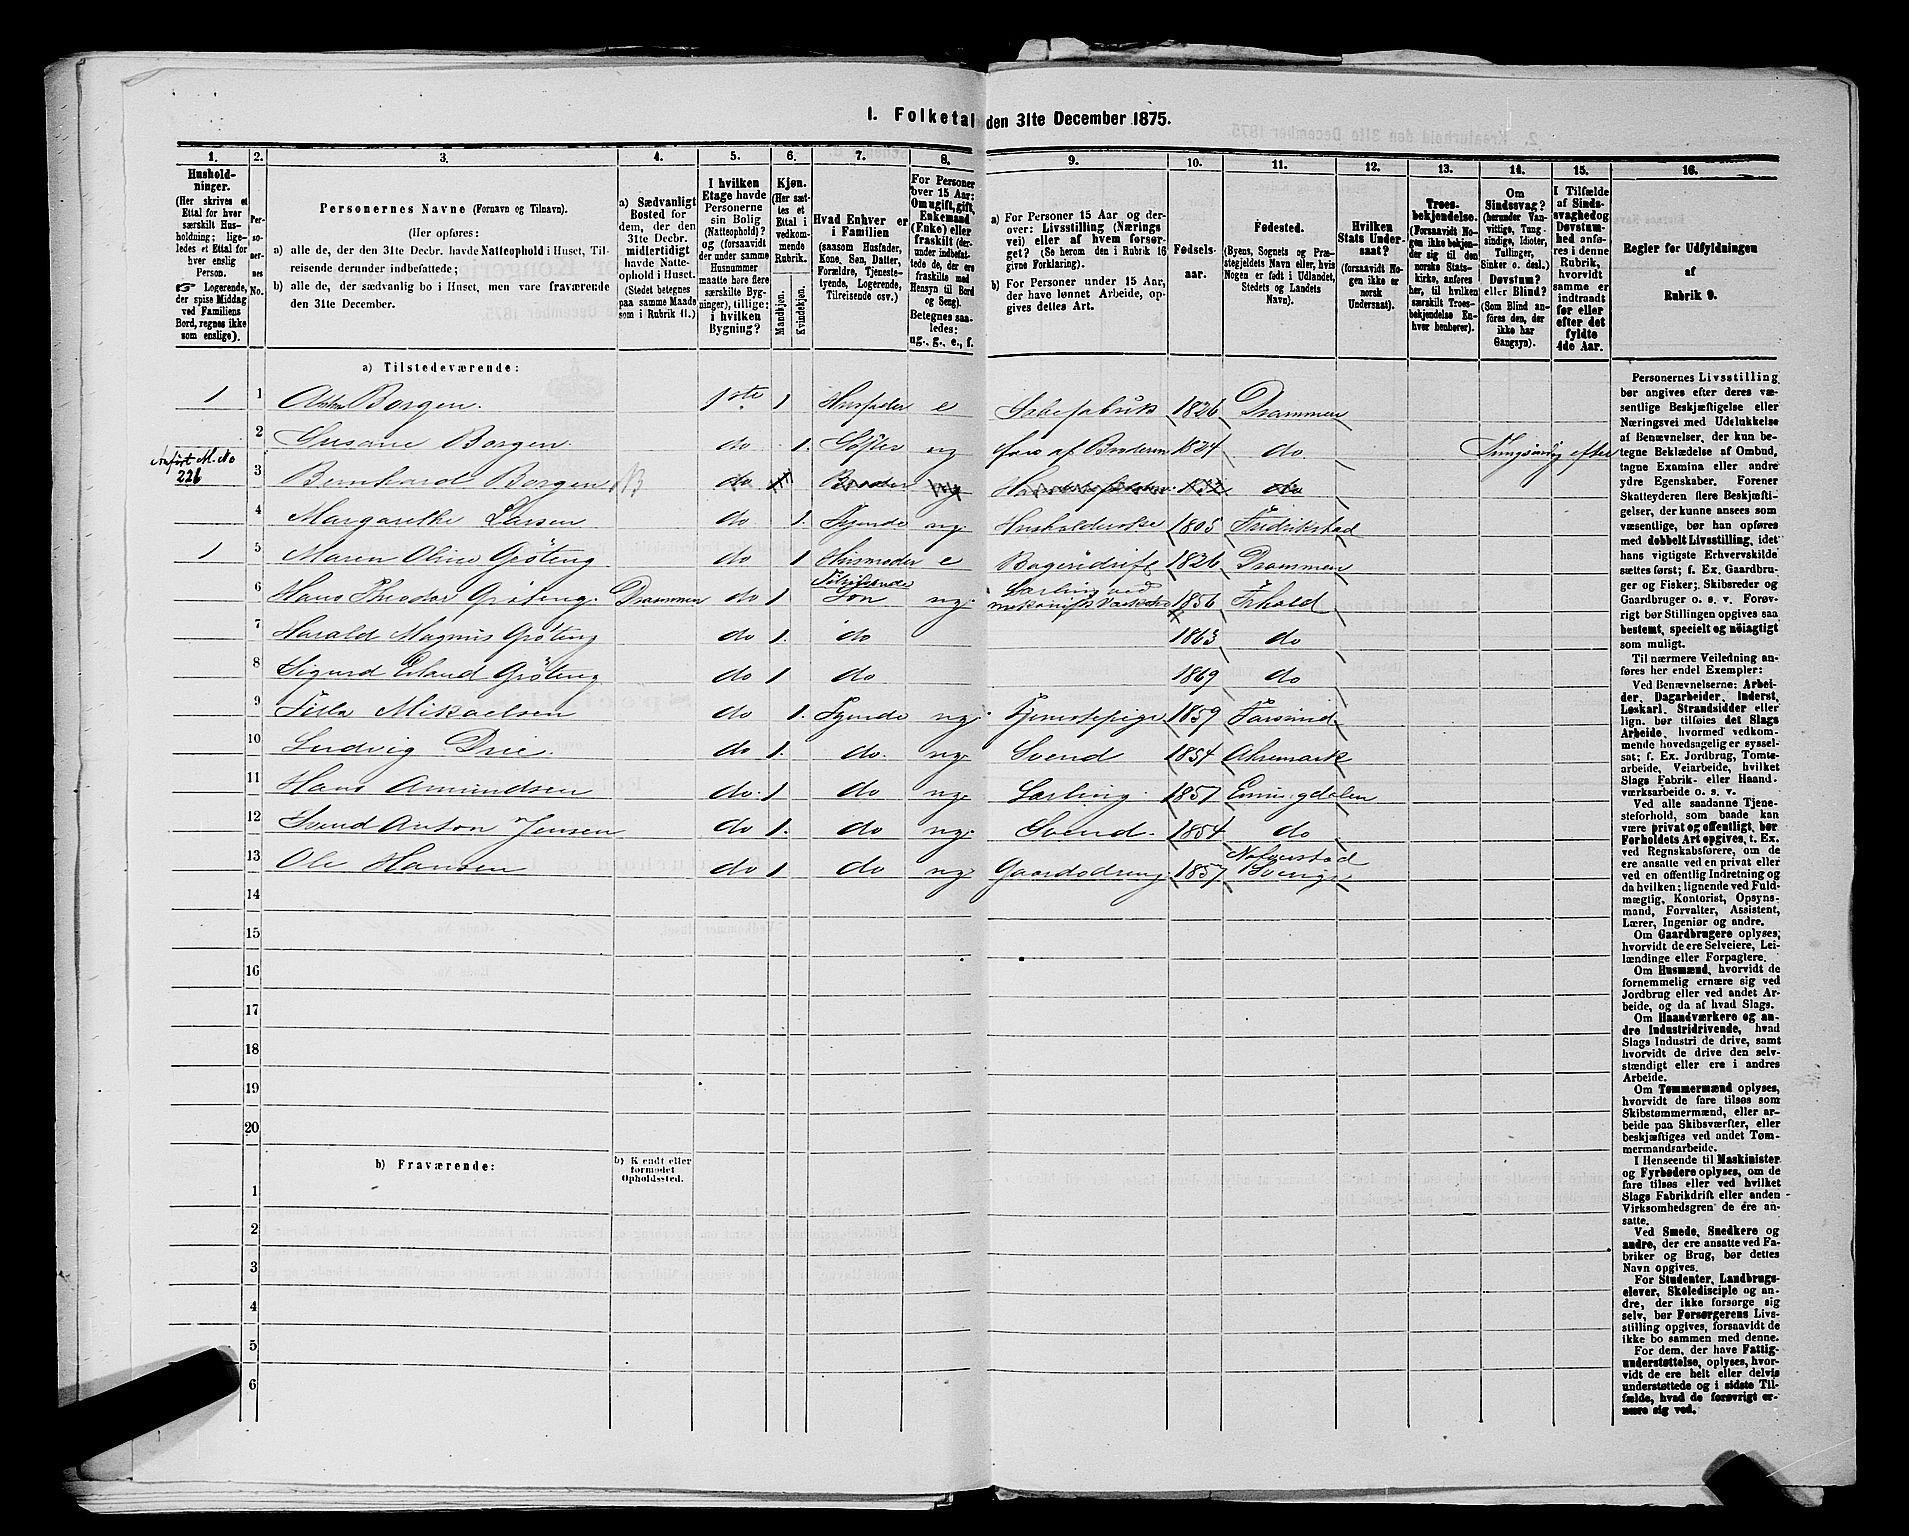 1. Folketal den 31te December 1875.
1. 2. 3. 4. 5. 6. 7. 8. 9. 10. 11. 12. 13. 14. 15. 16.
Hushold-
ninger.
(Her skrives et
Ettal for hver
særskilt Hus-
holdning; lige-
ledes et Ettal for
hver enslig
Person.
☞ Logerende,
der spise Middag
ved Familiens
Bord, regnes ikke
som enslige).
Per-
so-
ner-
nes
No.
Personernes Navne (Fornavn og Tilnavn).
(Her opføres:
a) alle de, der den 31te Decbr. havde Natteophold i Huset, Til-
reisende derunder indbefattede;
b) alle de, der sædvanlig bo i Huset, men vare fraværende
den 31te December.
a) Sædvanligt
Bosted for
dem, der den
31te Decbr.
midlertidigt
havde Natte-
ophold i Huset.
(Stedet betegnes
paa samme Maade
som i Rubrik 11.)
I hvilken
Etage havde
Personerne
sin Bolig
(Natteophold)?
og (forsaavidt
der under samme
Husnummer
maatte høre flere
særskilte Byg-
ninger), tillige:
i hvilken
Bygning?
Kjøn.
(Her sæt-
tes et
Ettal i
vedkom-
mende
Rubrik.
Mandkjøn.
Kvindekjøn.
Hvad Enhver er
i Familien
(saasom Husfader,
Kone, Søn, Datter,
Forældre, Tjeneste-
tyende, Logerende,
Tilreisende osv.)
For Personer
over 15 Aar:
Om ugift, gift,
Enkemand
(Enke) eller
fraskilt (der-
under indbefat-
tede de, der ere
fraskilte med
Hensyn til Bord
og Seng).
Betegnes saa-
ledes:
ug., g., e., f.
a) For Personer 15 Aar og der-
over: Livsstilling (Nærings
vei) eller af hvem forsør-
get? (Se herom den i Rubrik 16
givne Forklaring).
b) For Personer under 15 Aar,
der have lønnet Arbeide, op-
gives dettes Art.
Fødsels-
aar.
Fødested.
(Byens, Sognets og Præ-
stegjeldets Navn eller, hvis
Nogen er født i Udlandet,
Stedets og Landets
Navn).
Hvilken
Stats Under-
saat?
(forsaavidt No-
gen ikke er
norsk
Undersaat).
Troes-
bekjendelse.
(Forsaavidt No-
gen ikke bekjen-
der sig til den
norske Stats-
kirke, anføres
her, til hvilken
særskilt Troes-
bekjendelse En-
hver henhører).
Om
Sindssvag?
(herunder Van-
vittige, Tung-
sindige, Idioter,
Tullinger,
Sinker o. desl.)
Døvstum?
eller Blind?
(Som Blind an-
føres den, der
ikke har
Gangsyn).
I Tilfælde
af Sinds-
svaghed og
Døvstum-
hed anfø-
res i denne
Rubrik,
hvorvidt
samme er
indtraadt
før eller
efter det
fyldte
4de Aar.
Regler for Udfyldningen
af
Rubrik 9.
a) Tilstedeværende:
1 1 Borgen. 1ste 1 Husfader e 1826 Drammen
2 Susane Borgen do 1. Søster ug 1834 do efter
Anført M. No
226
3 Bernhard Borgen do Broder ug do
4 Margarethe Larsen do 1. Tyende ug. Husholderske 1805 Fredrikstad
1 5 Maren Oline Gröteng do 1 Husmoder e Bageridrift 1826 Drammen
6 Hans Theodor Gröteng. Drammen do 1 Tilreisende Søn ug. Lærling ved 1856
7 Harald Magnus Gröteng do 1. do 1863 do
8 Sigurd Gröteng do 1 do 1869 do
9 Mikaelsen do 1. Tyende ug. Tjenestepige 1859 Farsund
10 Ludvig do 1. do. ug. Svend 1854 Ahremark
11 Hans Amundsen do. 1 do ug Lærling. 1857
12 Svend Anton Jensen do 1. do ug. Svend. 1854 do
13 Ole Hansen do 1 do ug Gaardsdreng 1857 Sverige
14
15
16
17
18
19
20
b) Fraværende:
b) Kjendt eller
formodet
Opholdssted.
1
2
3
4
5
6
Personernes Livsstilling
bør angives efter deres væ-
sentlige Beskjæftigelse eller
Næringsvei med Udelukkelse
af Benævnelser, der kun be-
tegne Beklædelse af Ombud,
tagne Examina eller andre
ydre Egenskaber. Forener
Skatteyderen flere Beskjæfti-
gelser, der kunne ansees som
væsentlige, bør han opføres
med dobbelt Livsstilling, idet
hans vigtigste Erhvervskilde
sættes først; f. Ex. Gaardbru-
ger og Fisker; Skibsreder og
Gaardbruger o. s. v. Forøv-
rigt bør Stillingen opgives saa
bestemt, specielt og nøiagtigt
som muligt.
Til nærmere Veiledning an-
føres her endel Exempler:
Ved Benævnelserne: Arbei-
der, Dagarbeider, Inderst,
Løskarl, Strandsidder eller
lign. bør tilføies det Slags
Arbeide, hvormed vedkom-
mende hovedsagelig er syssel-
sat; f. Ex. Jordbrug, Tomte-
arbeide, Veiarbeide, hvilket
Slags Fabrik- eller Haand-
værksarbeide o. s. v.
Ved alle saadanne Tjene-
steforhold, som baade kan
være privat og offentligt, bør
Forholdets Art opgives, t. Ex.
ved Regnskabsførere, om de
ere ansatte ved en privat eller
ved en offentlig Indretning og
da hvilken; lignende ved Fuld-
mægtig, Kontorist, Opsyns-
mand, Forvalter, Assistent,
Lærer, Ingeniør og andre.
Om Gaardbrugere oplyses,
hvorvidt de ere Selveiere, Lei-
lændinge eller Forpagtere.
Om Husmænd, hvorvidt de
fornemmelig ernære sig ved
Jordbrug eller ved andet Ar-
beide, og da af hvad Slags.
Om Haandværkere og an-
dre Industridrivende, hvad
Slags Industri de drive, samt
hvorvidt de drive den selv-
stændigt eller ere i andres
Arbeide.
Om Tømmermænd oplyses,
hvorvidt de fare tilsøs som
Skibstømmermænd, eller ar-
beide paa Skibsværfter, eller
beskjæftiges ved andet Tøm-
mermandsarbeide.
I Henseende til Maskinister
og Fyrbødere oplyses, om de
fare tilsøs eller ved hvilket
Slags Fabrikdrift eller anden
Virksomhedsgren de ere an-
satte.
Ved Smede, Snedkere og
andre, der ere ansatte ved Fa-
briker og Brug, bør dettes
Navn opgives.
For Studenter, Landbrugs-
elever, Skoledisciple og an-
dre, der ikke forsørge sig
selv, bør Forsørgerens Livs-
stilling opgives, forsaavidt de
ikke bo sammen med denne.
For dem, der have Fattig-
understøttelse, oplyses, hvor-
vidt de ere helt eller delvis
understøttede og i sidste Til-
fælde, hvad de forøvrigt er-
nære sig ved.